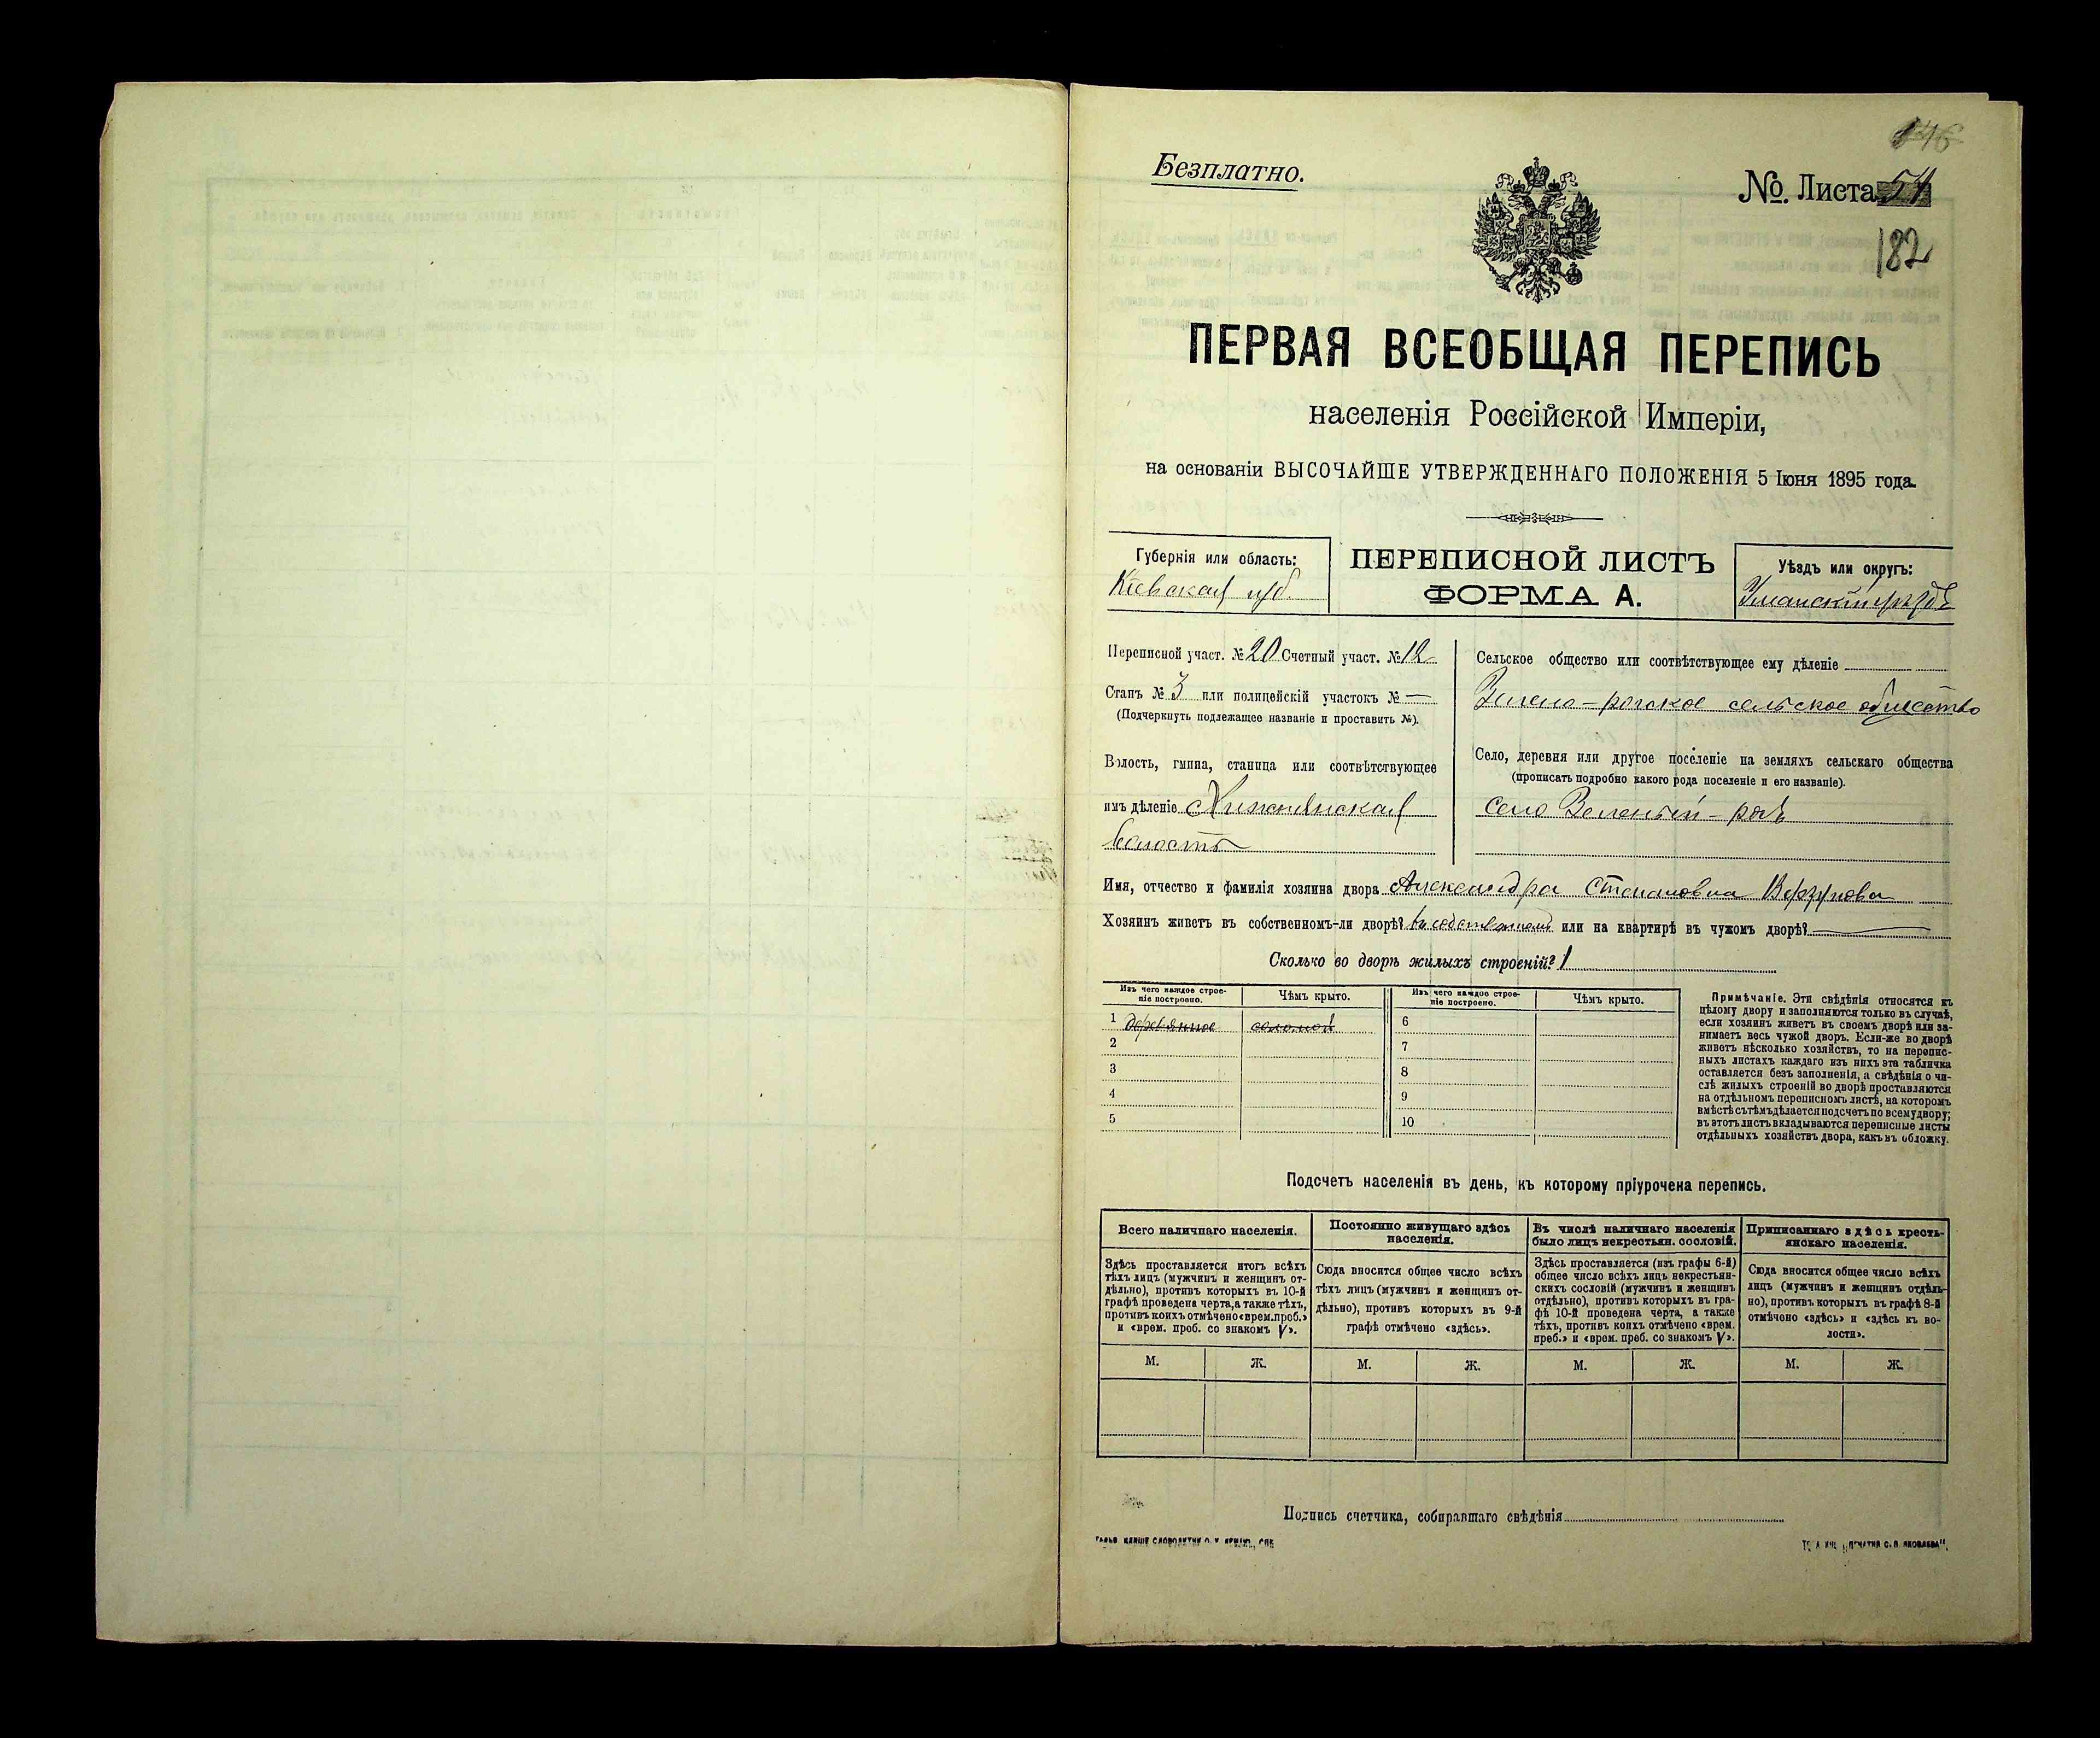 146
Безплатно.
№. Листа 54
182
ПЕРВАЯ ВСЕОБЩАЯ ПЕРЕПИСЬ
населенія Россійской Имперіи,
на основаніи ВЫСОЧАЙШЕ УТВЕРЖДЕННАГО ПОЛОЖЕНІЯ 5 Іюня 1895 года.
Губернія или область:
Кіевская губ.
ПЕРЕПИСНОЙ ЛИСТЪ
ФОРМА А.
Уѣздъ или округъ:
Уманскій уѣздъ
Переписной участ. № 20 Счетный участ. № 12
Станъ № 3 или полицейскій участокъ № —
(Подчеркнуть подлежащее названіе и проставить №).
Волость, гмина, станица или соотвѣтствующее
имъ дѣленіе
волость
Сельское общество или соотвѣтствующее ему дѣленіе
Зелено-рогское сельское общество
Село, деревня или другое поселеніе на земляхъ сельскаго общества
(прописать подробно какого рода поселеніе и его названіе).
село Зеленый-рогъ
Имя, отчество и фамилія хозяина двора Александра Степановна
Хозяинъ живетъ въ собственномъ-ли дворѣ? въ собственномъ или на квартирѣ въ чужомъ дворѣ? —
Сколько во дворѣ жилыхъ строеній? 1
Изъ чего каждое строе-
ніе построено.
Чѣмъ крыто.
1 деревянное соломой
2
3
4
5
Изъ чего каждое строе-
ніе построено.
Чѣмъ крыто.
6
7
8
9
10
Примѣчаніе. Эти свѣдѣнія относятся къ
цѣлому двору и заполняются только въ случаѣ,
если хозяинъ живетъ въ своемъ дворѣ или за-
нимаетъ весь чужой дворъ. Если-же во дворѣ
живетъ нѣсколько хозяйствъ, то на перепис-
ныхъ листахъ каждаго изъ нихъ эта табличка
оставляется безъ заполненія, а свѣдѣнія о чи-
слѣ жилыхъ строеній во дворѣ проставляются
на отдѣльномъ переписномъ листѣ, на которомъ
вмѣстѣ съ тѣмъ дѣлается подсчетъ по всему двору;
въ этотъ листъ вкладываются переписные листы
отдѣльныхъ хозяйствъ двора, какъ въ обложку.
Подсчетъ населенія въ день, къ которому пріурочена перепись.
Всего наличнаго населенія.
Здѣсь проставляется итогъ всѣхъ
тѣхъ лицъ (мужчинъ и женщинъ от-
дѣльно), противъ которыхъ въ 10-й
графѣ проведена черта, а также тѣхъ,
противъ коихъ отмѣчено «врем. преб.»
и «врем. преб. со знакомъ V».
М. Ж.
Постоянно живущаго здѣсь
населенія.
Сюда вносится общее число всѣхъ
тѣхъ лицъ (мужчинъ и женщинъ от-
дѣльно), противъ которыхъ въ 9-й
графѣ отмѣчено «здѣсь».
М. Ж.
Въ числѣ наличнаго населенія
было лицъ некрестьян. сословій.
Здѣсь проставляется (изъ графы 6-й)
общее число всѣхъ лицъ некрестьян-
скихъ сословій (мужчинъ и женщинъ
отдѣльно), противъ которыхъ въ гра-
фѣ 10-й проведена черта, а также
тѣхъ, противъ коихъ отмѣчено «врем.
преб.» и «врем. преб. со знакомъ V».
М. Ж.
Приписаннаго здѣсь кресть-
янскаго населенія.
Сюда вносится общее число всѣхъ
лицъ (мужчинъ и женщинъ отдѣль-
но), противъ которыхъ въ графѣ 8-й
отмѣчено «здѣсь» и «здѣсь къ во-
лости».
М. Ж.
Подпись счетчика, собиравшаго свѣдѣнія